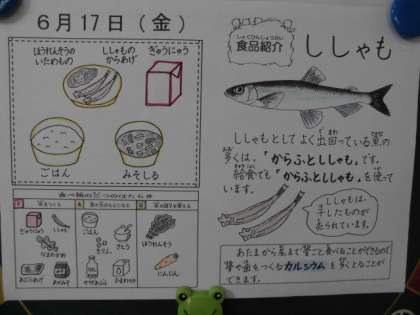 6月17日(金)
ほうれんそうの
いためもの
ししゃもの
からあげ
ぎゅうにゅう
ごはん
みそしる
しょくひんしょうかい
食品紹介
ししゃも
ししゃもとしてよく出回っている魚の
多くは、「からふとししゃも」です。
給食でも「からふとししゃも」を使って
います。
ししゃもは、
干したものが
売られています。
あたまから尾まで骨ごと食べることができるので
骨や歯をつくるカルシウムを多くとることが
できます。
食べ物の三つのはたらき
ぎゅうにゅう
ししゃも
ごはん
さとう
ほうれんそう
にんじん